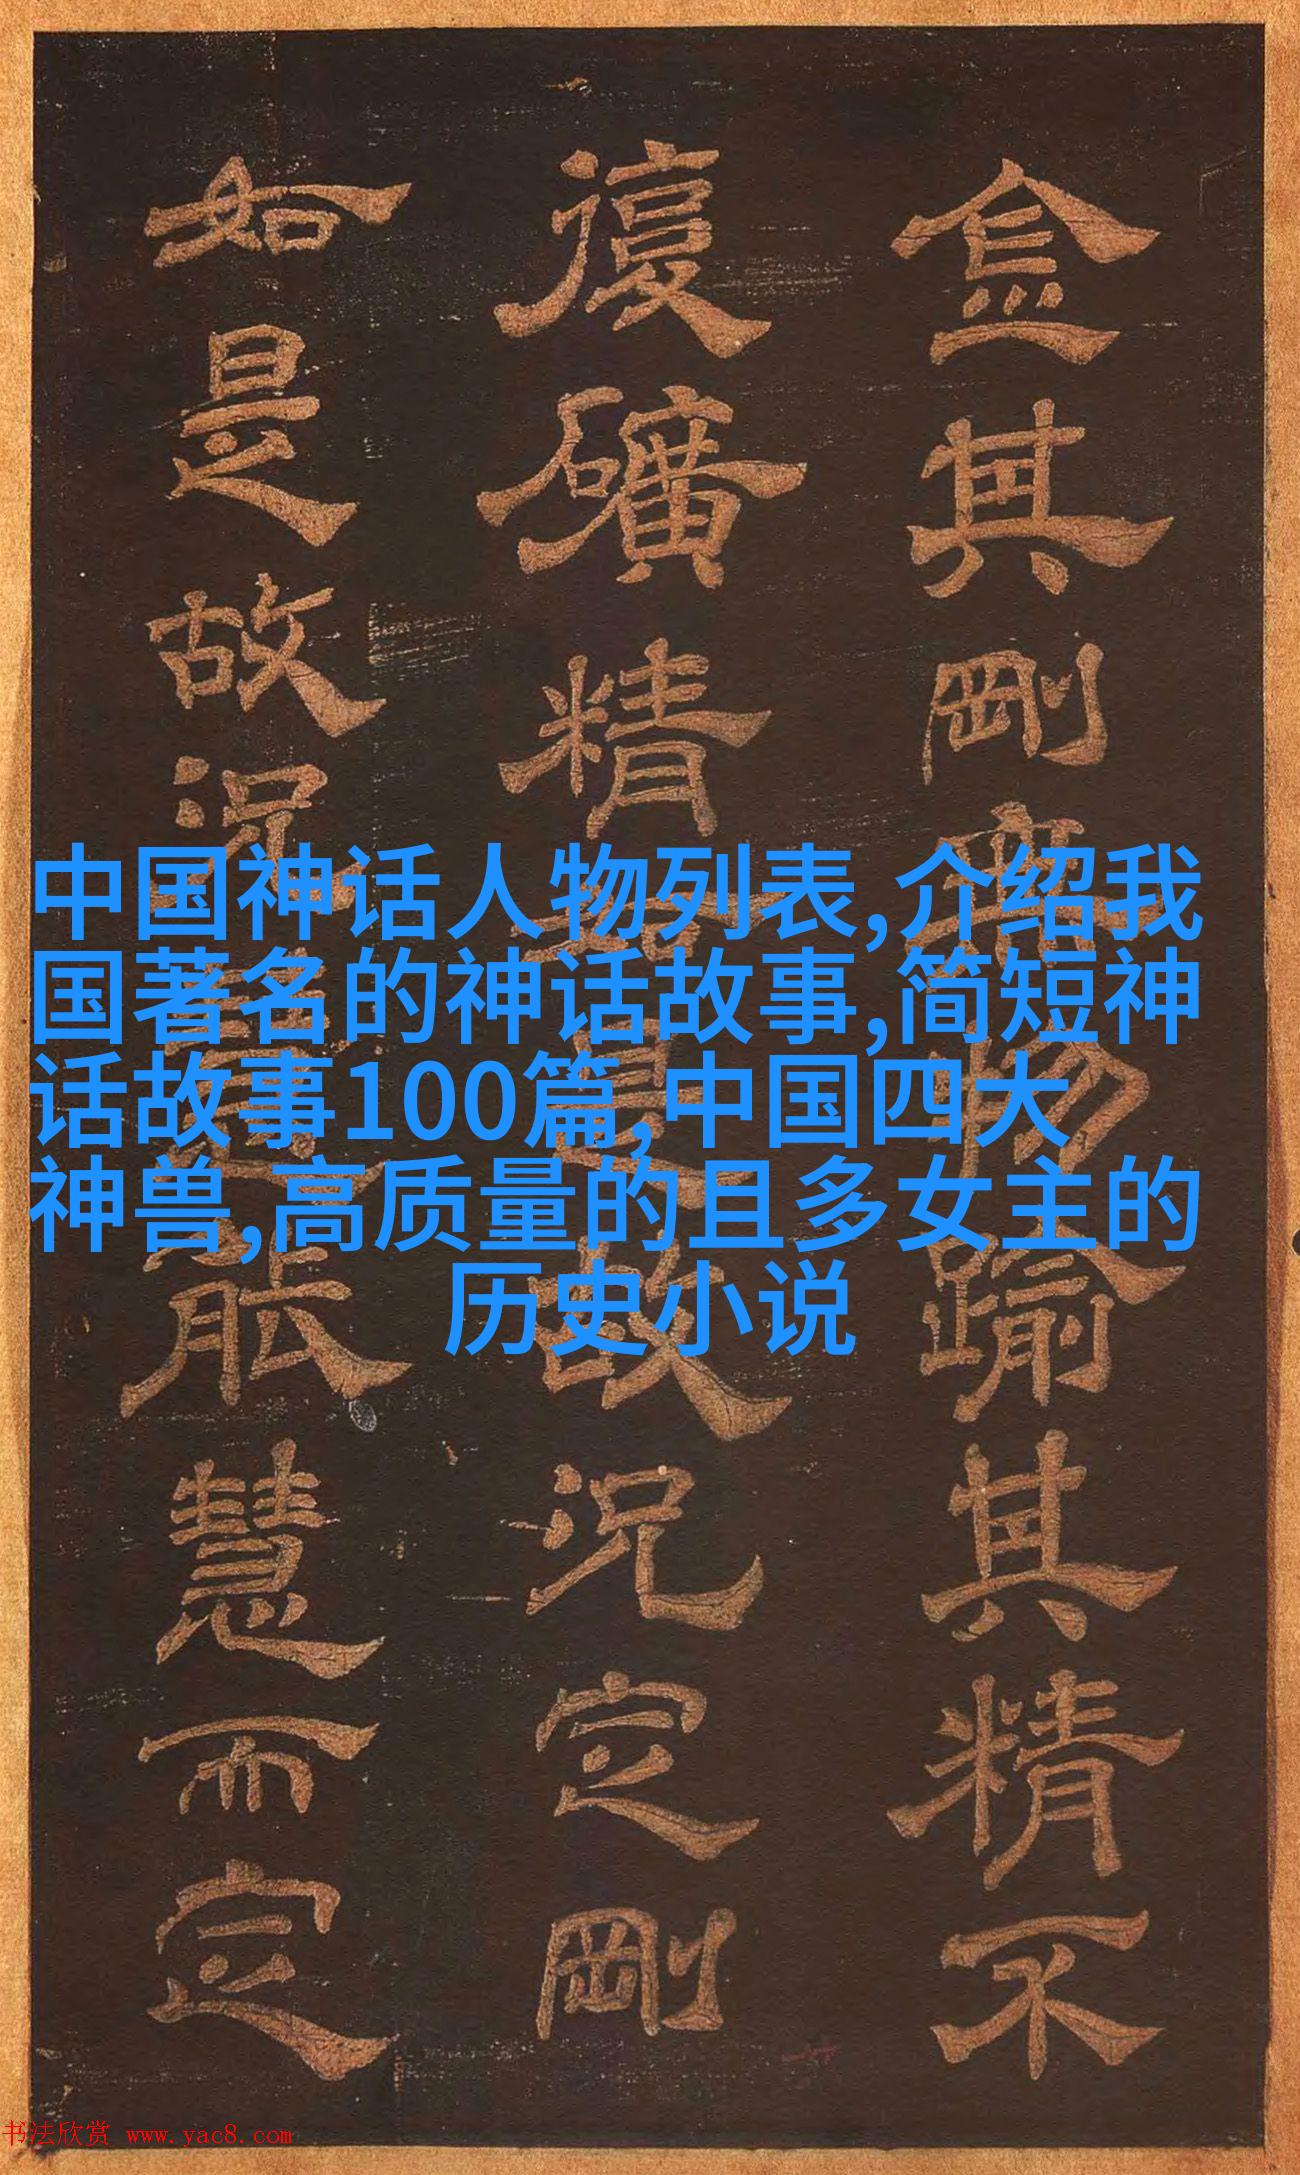 金其剛無物踰其精不
復礦精故況定剛
如是故況慧而定
中国神话人物列表,介绍我
国著名的神话故事,简短神
话故事100篇,中国四大
神兽,高质量的且多女主的
历史小说
书法欣赏 www.yac8.com